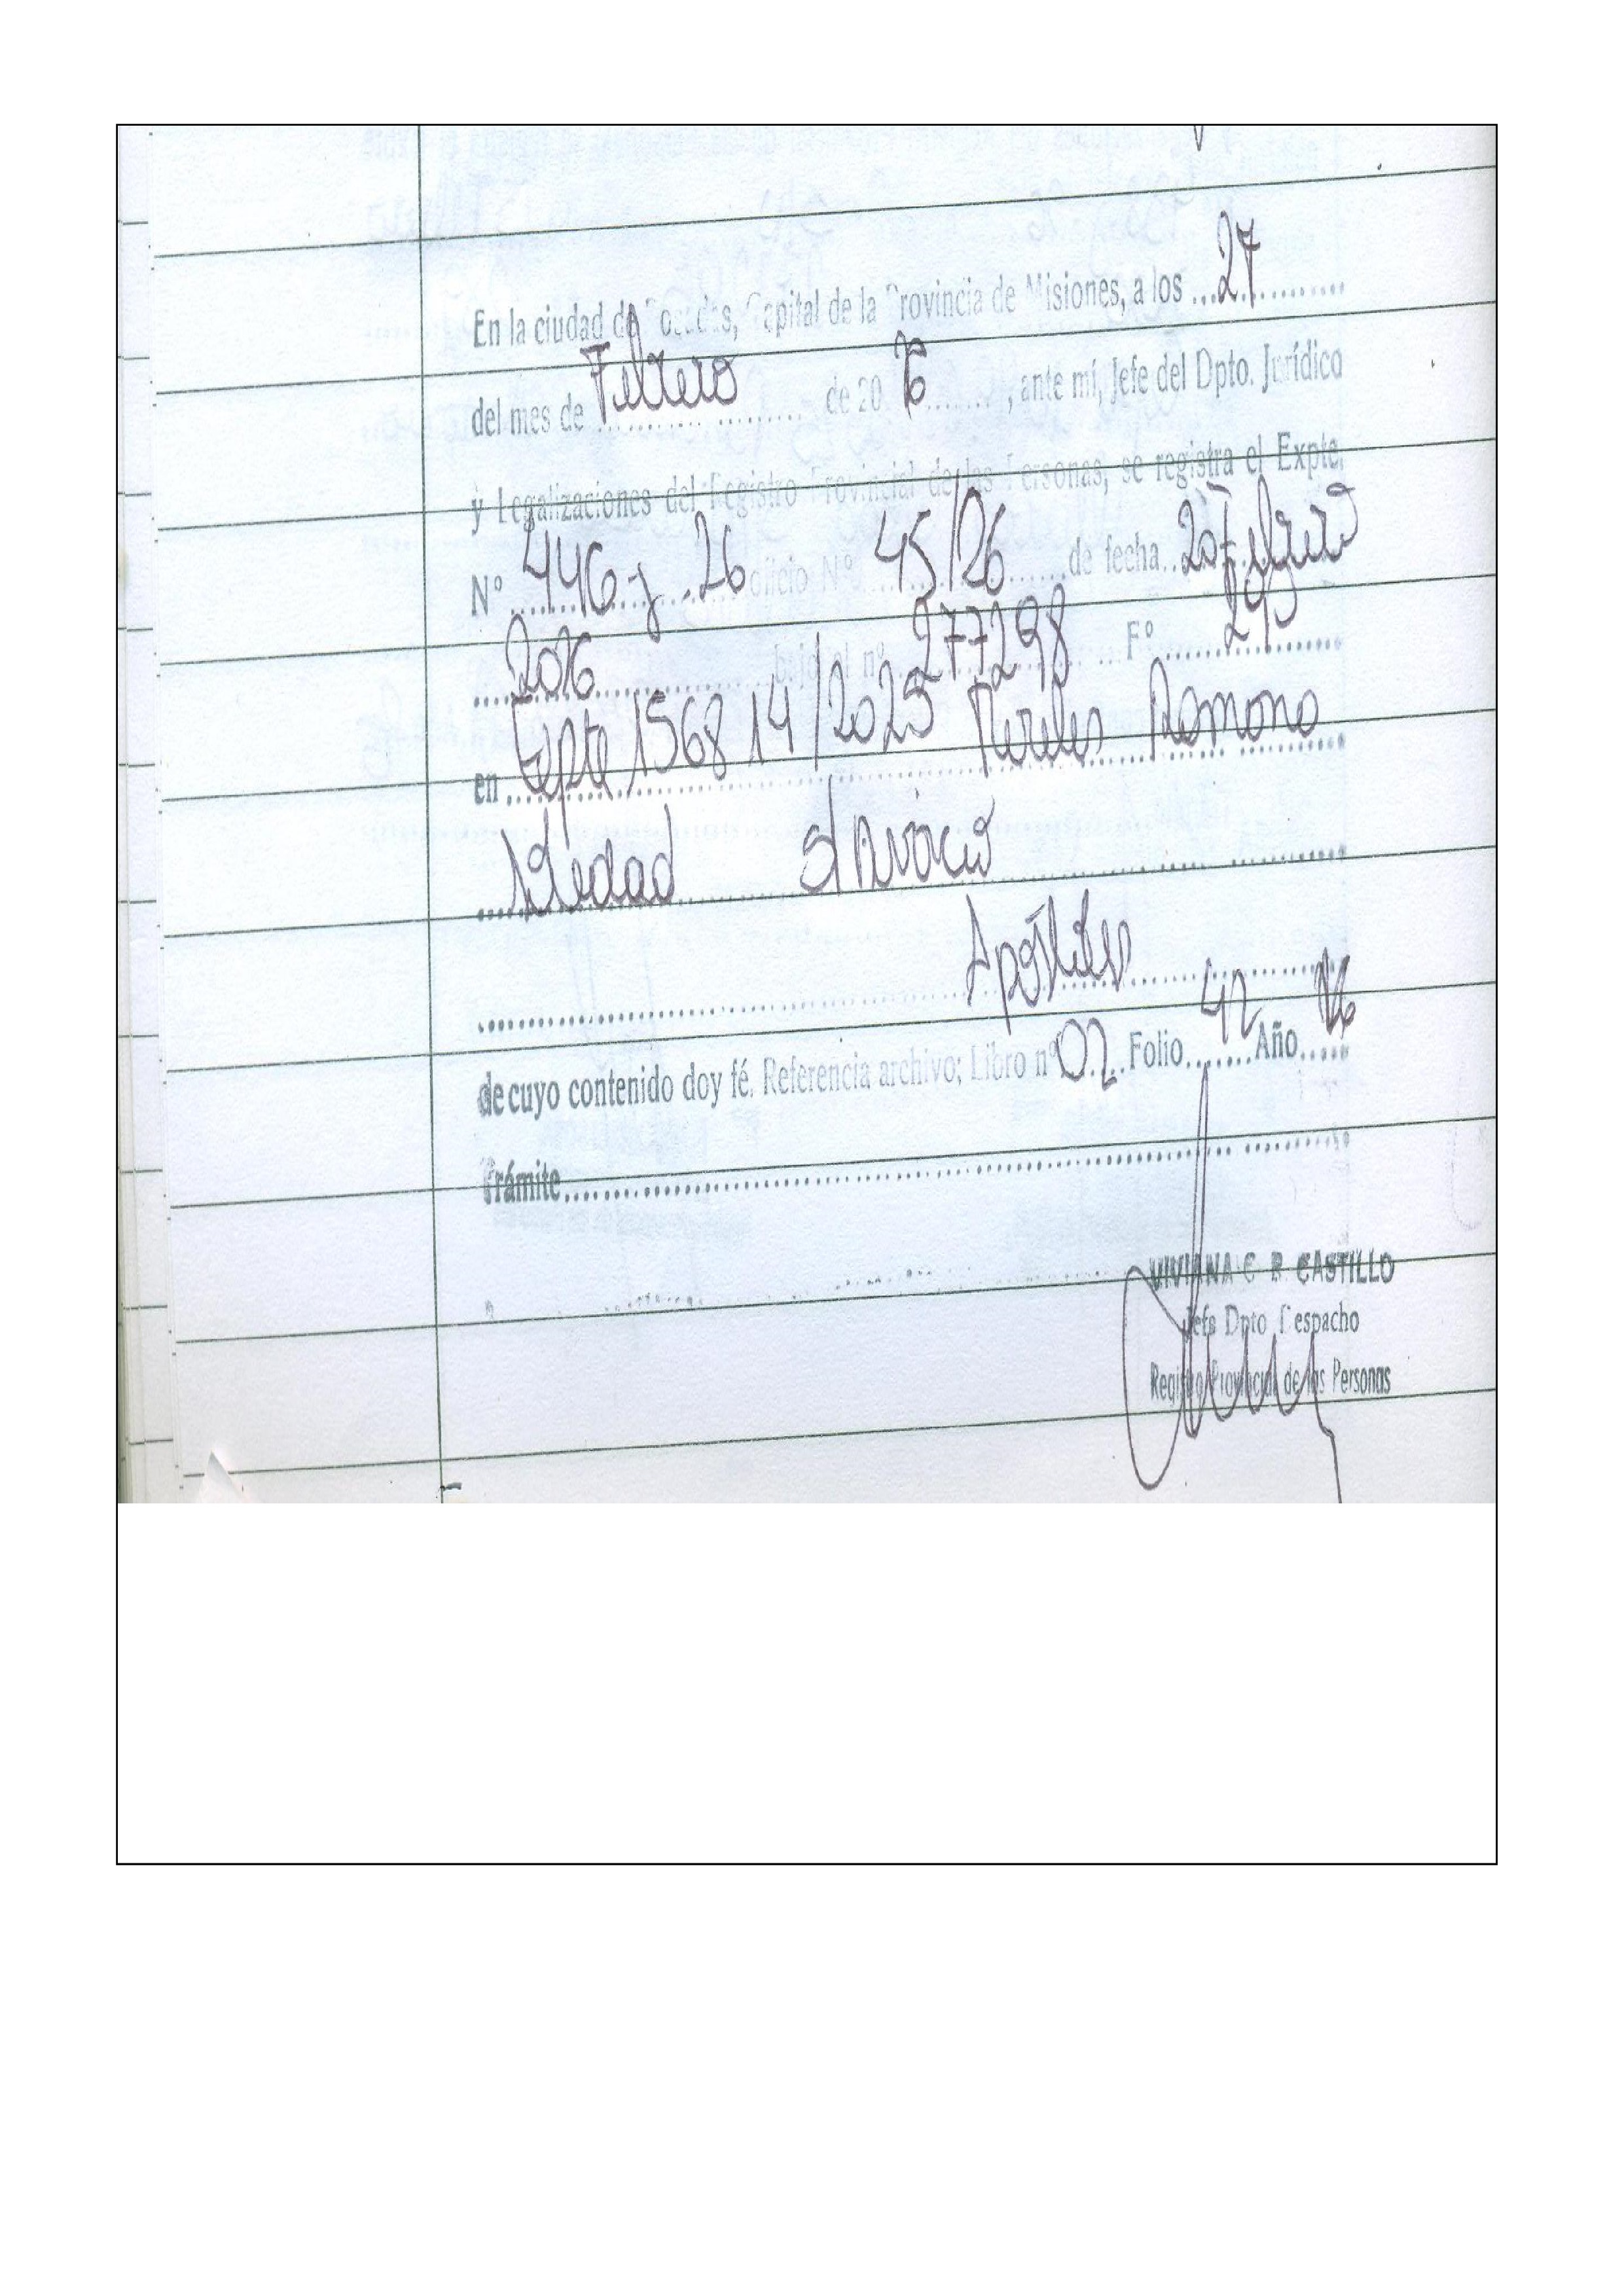 En la ciudad de Posadas, Capital de la Provincia de Misiones, a los 27
del mes de Febrero de 20 26, ante mí, Jefe del Dpto. Jurídico
y Legalizaciones del Registro Provincial de las Personas, se registra el Expte.
Nº 446-J-26 oficio Nº 45/26 de fecha 20 Febrero
2026 bajo el nº 277298 Fº 295
en Expte 156814/2025 Ramona
Soledad s/ Divorcio
Apóstoles
de cuyo contenido doy fé. Referencia archivo; Libro nº 02 Folio 42 Año 26
Trámite
VIVIANA C R CASTILLO
Jefa Dpto Despacho
Registro Provincial de las Personas